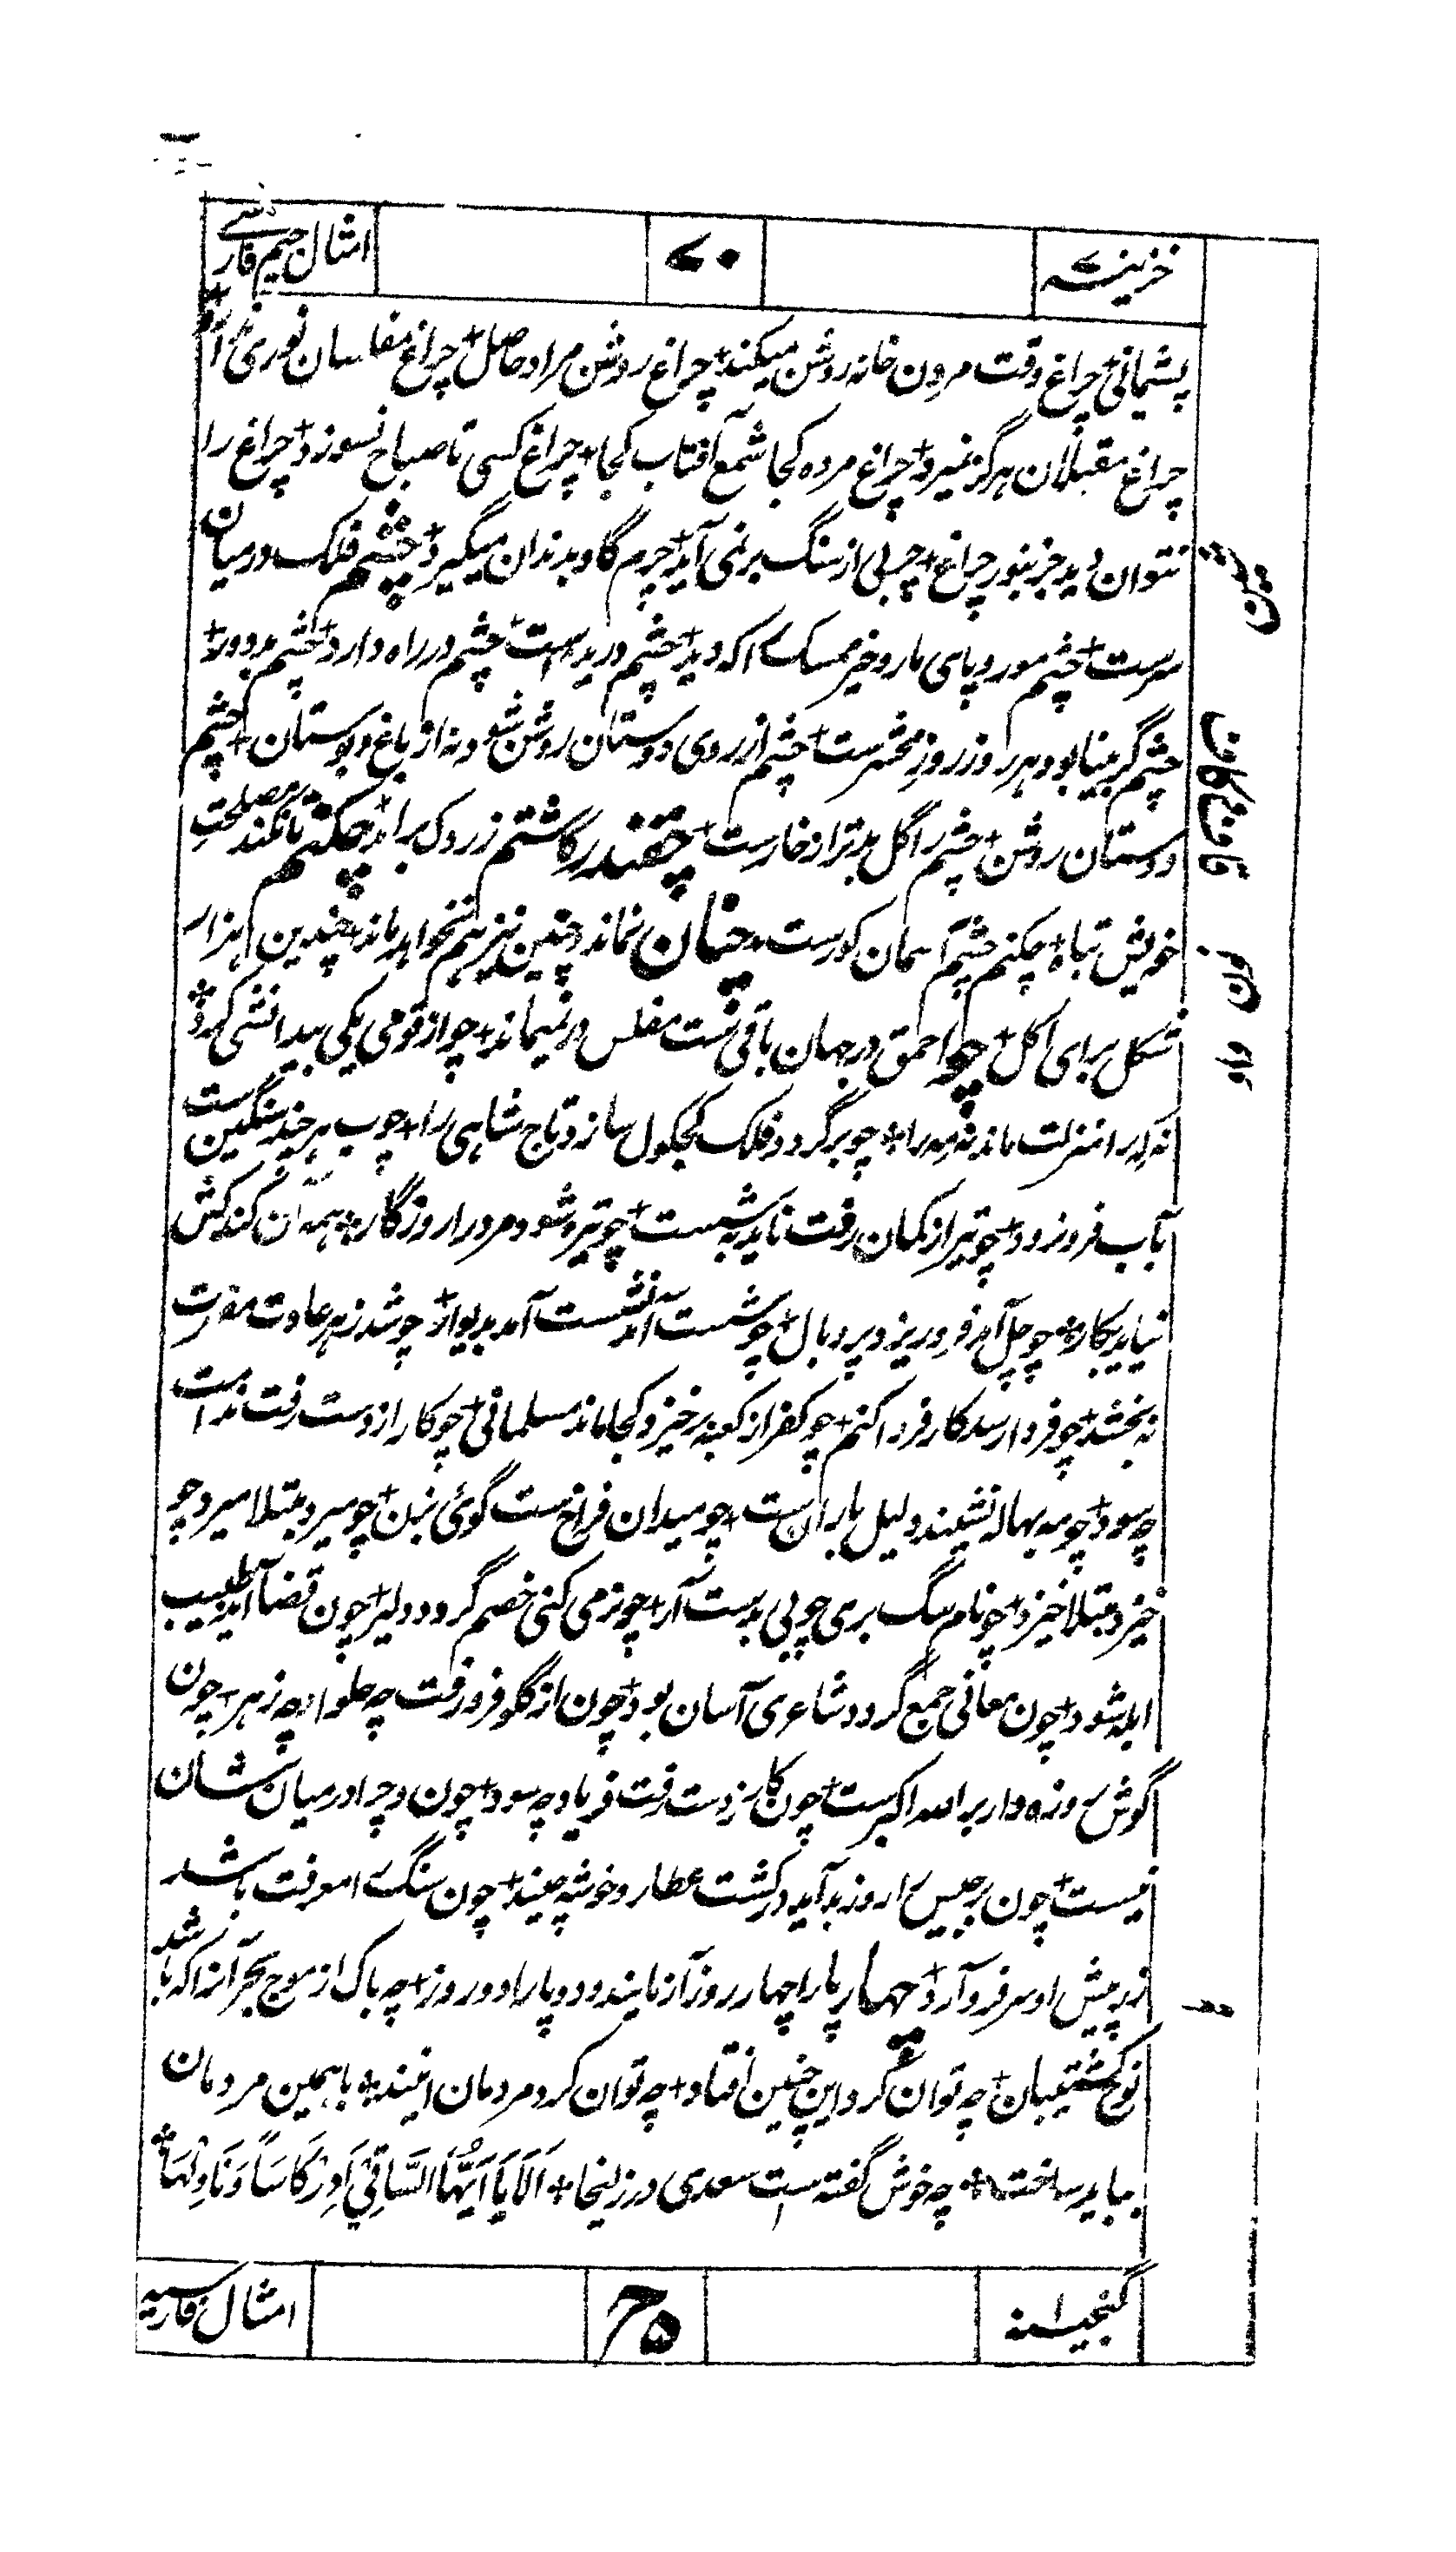 خزینة ۷۰ امثال جیم فارسے
پشیمانی + چراغ وقت مردن خانه روشن میکند + چراغ روشن مراد حاصل + چراغ مفلسان نوری ندارد +
چراغ مقبلان هرگز نمیرد + چراغ مرده کجا شمع آفتاب کجا + چراغ کسی تا صباح نسوزد + چراغ را
نتوان دید جز بنور چراغ + چربی از سنگ برنمی آید + چرم گاو بدندان میگیرد + چشم فلک درمیان
سرست + چشم مور و پای مار و خیر ممسک را که دید + چشم دریده است + چشم در راه دارد + چشم بد دور +
چشم گر بینا بود هر روز روز محشرست + چشم از روی دوستان روشن شود نه از باغ و بوستان + چشم
دوستان روشن + چشم را گل بدتر از خارست + چقندر کاشتم زردک برآمد + چکنم تا نکند مصلحتِ
خویش تباه + چکنم چشم آسمان کورست + چنان نماند چنین نیز هم نخواهد ماند + چندین هزار
شکل برای اکل + چو احمق در جهان باقی ست مفلس در نمیماند + چو از قومی یکی بیدانشی کرد +
نه که را منزلت ماند نه مه را + چو برگردد فلک کجکول سازد تاج شاهی را + چوب هر چند سنگین ست
بآب فرو نرود + چو تیر از کمان رفت ناید به شست + چو تیره شود مرد را روزگار + همه آن کند کش
نیاید بکار + چو چل آمد فرو ریزد پر و بال + چو شست آمد نشست آمد بدیوار + چو شد زهر عادت مضرت
نه بخشد + چو فردا رسد کار فردا کنم + چو کفر از کعبه برخیزد کجا ماند مسلمانی + چو کار از دست رفت ندامت
چه سود + چو مه بهاله نشیند دلیل باران ست + چو میدان فراخ ست گوئی بزن + چو میرد مبتلا میرد چو
خیزد مبتلا خیزد + چو نام سگ بری چوبی بدست آر + چو نرمی کنی خصم گردد دلیر + چون قضا آید طبیب
ابله شود + چون معانی جمع گردد شاعری آسان بود + چون از گلو فرو رفت چه حلوا و چه زهر + چون
گوش روزه دار بر الله اکبرست + چون کار ز دست رفت فریاد چه سود + چون و چرا درمیان نشان
نیست + چون برجیس را روز بد آید در کشت عطارد خوشه چیند + چون سنگ را معرفت باشد
زر پیش او سر فرو آرد + چهار پا را چهار روز آزمایند و دو پا را دو روز + چه باک از موج بحر آنرا که باشد
نوح کشتیبان + چه توان کرد این چنین افتاد + چه توان کرد مردمان اینند + با همین مردمان
بباید ساخت + چه خوش گفته است سعدی در زلیخا + اَلَا یَا اَیُّهَا السَّاقِیْ اَدِرْ کَاسًا وَّنَاوِلْهَا +
گنجینه امثال فارسیه